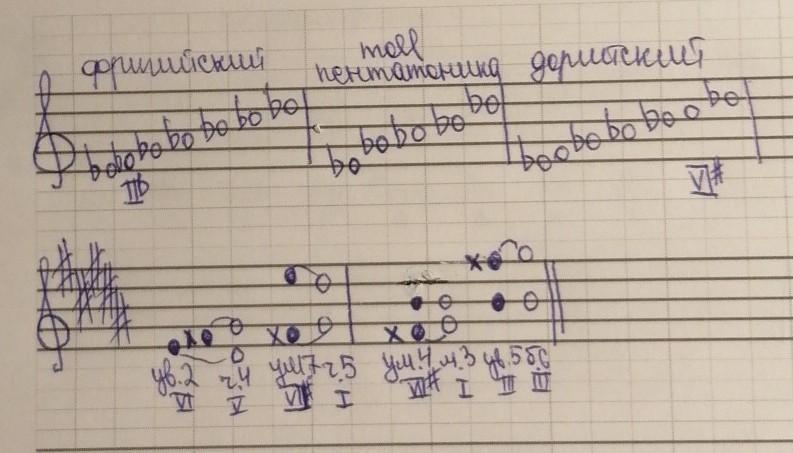 moll
фригийский пентатоника дорийский
IIb VI#
ув.2 ч.4 ум.7 ч.5 ум.4 м.3 ув.5 б.6
VI V VII# I VII# I III III